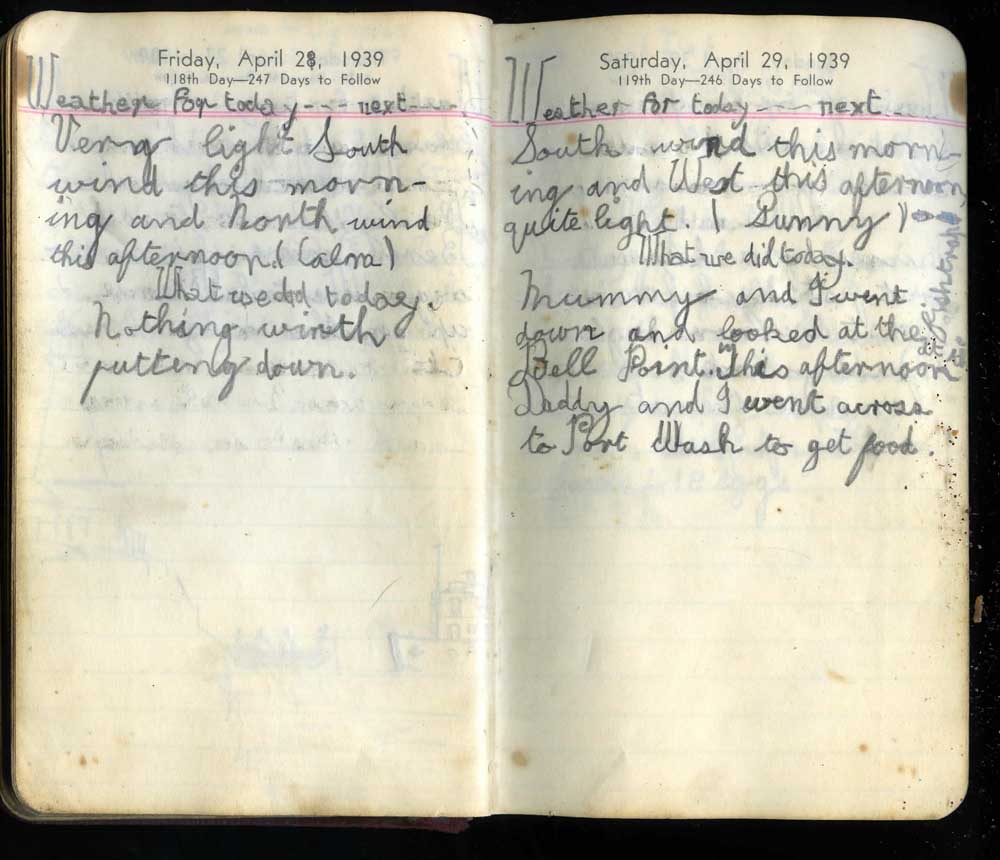 Friday, April 28, 1939
118th Day—247 Days to Follow
Weather for today --- next----
Very light South
wind this morn-
ing and North wind
this afternoon! (Calm)
What we did today.
Nothing wirsth
putting down.
Saturday, April 29, 1939
119th Day—246 Days to Follow
Weather for today --- next...
South wind this morn-
ing and West this afternoon,
quite light. ( Sunny )
What we did today.
Mummy and I went
down and looked at the
fishtraps
at
Bell Point. In this afternoon
Daddy and I went across
to Port Wash to get food.